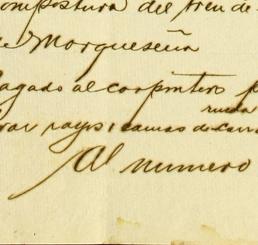 ompostura del tren de
de Morqueseña
agado al carpintero p
rueda
rar rayos i camas de carr
Al numero